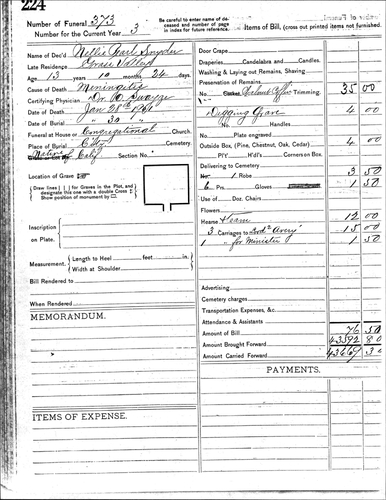 224
Number of Funeral 373
Number for the Current Year 3
Be carefully to enter name of de-
ceased and number of page
in index for future reference.
Items of Bill, (cross out printed items not furnished.
Name of Dec'd Nellie Pearl Snyder
Late Residence
Age 13 years 10 months 24 days.
Cause of Death Meningitis
Certifying Physician Dr.
Date of Death Jan 20th 1901
Date of Burial " 30 "
Funeral at House or Congregational Church.
Place of Burial City Cemetery.
Native of Calif Section No.
Location of Grave
Draw lines | | | for Graves in the Plot, and
designate this one with a double Cross
Show position of monument by
Inscription
on Plate.
Measurement.
Length to Heel feet in.
Width at Shoulder
Bill Rendered to
When Rendered
MEMORANDUM.
ITEMS OF EXPENSE.
Door Crape
Draperies Candelabra and Candles.
Washing & Laying out Remains, Shaving
Preservation of Remains
No. Casket Trimming. 35 00
Digging Grave 4 00
No. Handles
Plate engraved
Outside Box, (Pine, Chestnut, Oak, Cedar) 4 00
P'l'y H'd'l's Corners on Box.
Delivering to Cemetery
No. 1 Robe 3 50
6 Prs. Gloves 1 50
Use of Doz. Chairs
Flowers
Hearse Team 12 00
3 Carriages to 15 00
1 " for Minister 1 50
Advertising
Cemetery charges
Transportation Expenses, &c.
Attendance & Assistants
Amount of Bill 76 50
Amount Brought Forward 43592 80
Amount Carried Forward 43669 30
PAYMENTS.